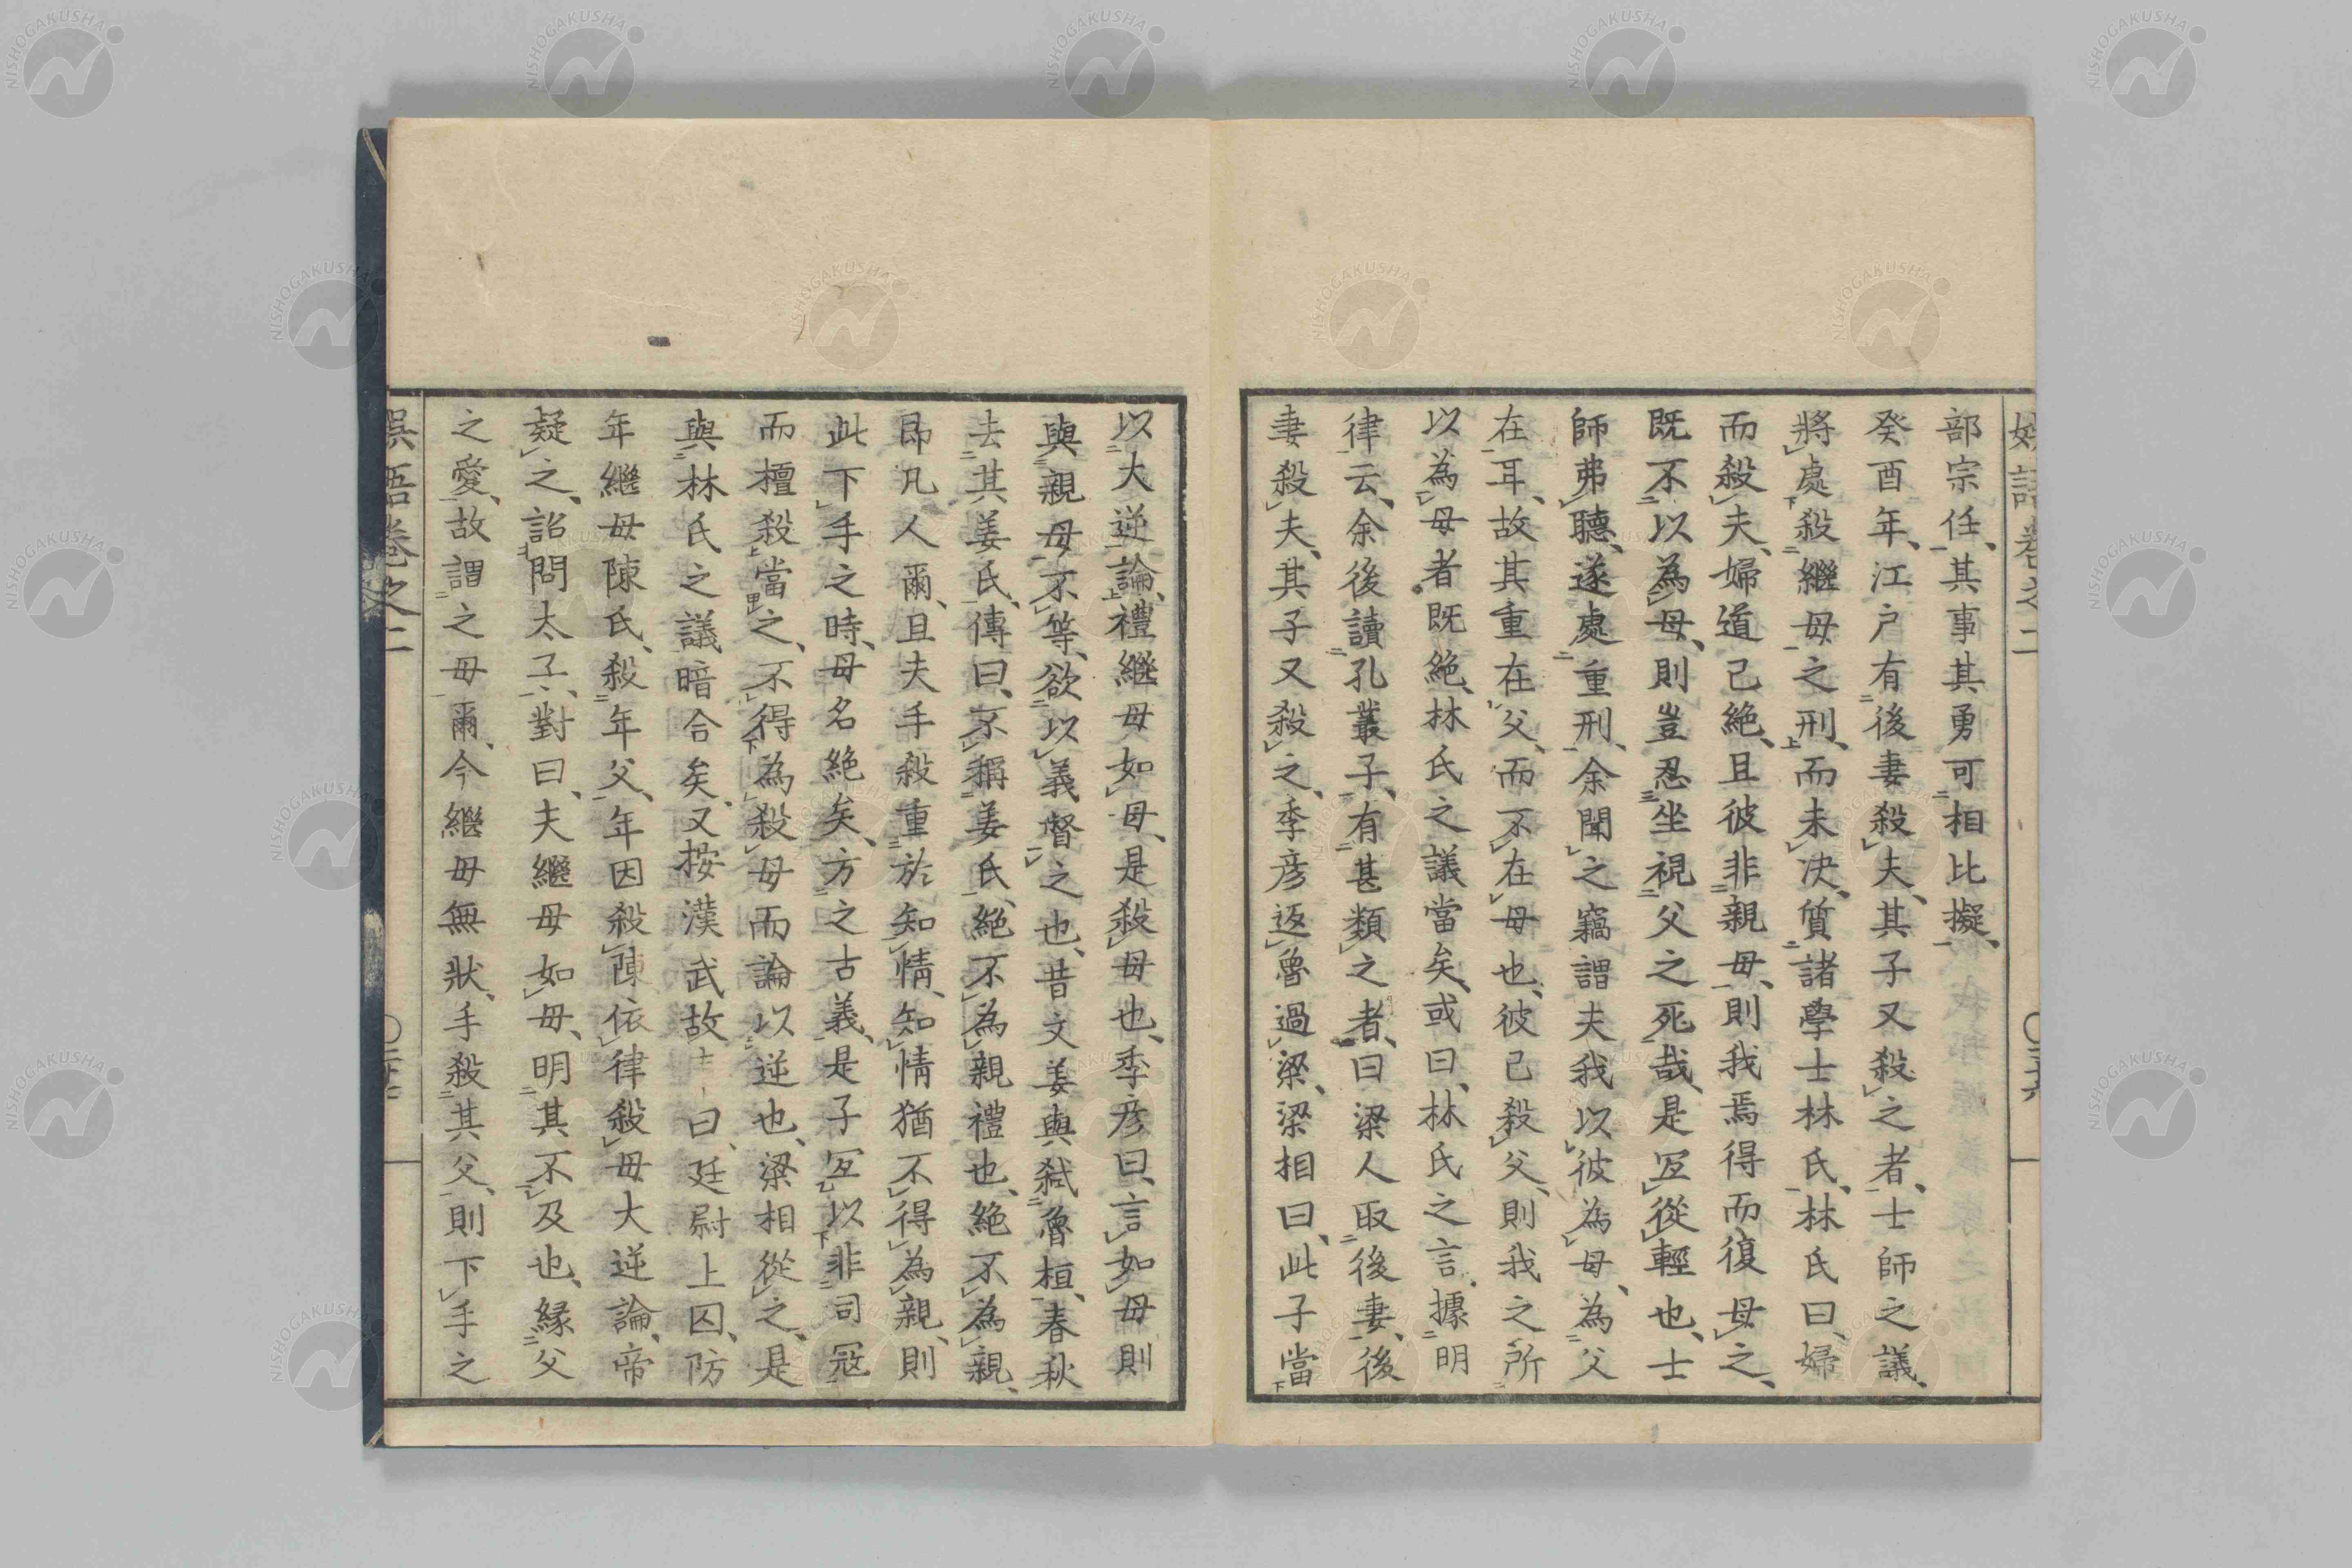 部宗任、其事其勇可相比擬、
癸酉年、江戸有後妻殺夫、其子又殺之者、士師之議、
將處殺繼母之刑、而未决、質諸學士林氏、林氏曰、婦
而殺夫、婦道已絶、且彼非親母、則我焉得而復母之、
既不以為母、則豈忍坐視父之死哉、是宜從輕也、士
師弗聽、遂處重刑、余聞之竊謂夫我以彼為母、為父
在耳、故其重在父、而不在母也、彼已殺父、則我之所
以為母者既絶、林氏之議當矣、或曰、林氏之言據明
律云、余後讀孔叢子、有甚類之者、曰梁人取後妻、後
妻殺夫、其子又殺之、季彦返魯過梁、梁相曰、此子當
以大逆論、禮繼母如母、是殺母也、季彦曰、言如母則
與親母不等、欲以義督之也、昔文姜與弑魯桓、春秋
去其姜氏、傳曰、不稱姜氏、絶不為親禮也、絶不為親、
即凡人爾、且夫手殺重於知情、知情猶不得為親、則
此下手之時、母名絶矣、方之古義、是子宜以非司冦
而擅殺當之、不得為殺母而論以逆也、梁相從之、是
與林氏之議暗合矣、又按漢武故曰、廷尉上囚、防
年繼母陳氏、殺年父、年因殺陳依律殺母大逆論、帝
疑之、詔問太子、對曰、夫繼母如母、明其不及也、縁父
之愛、故謂之母爾、今繼母無狀、手殺其父、則下手之
娯語卷之二